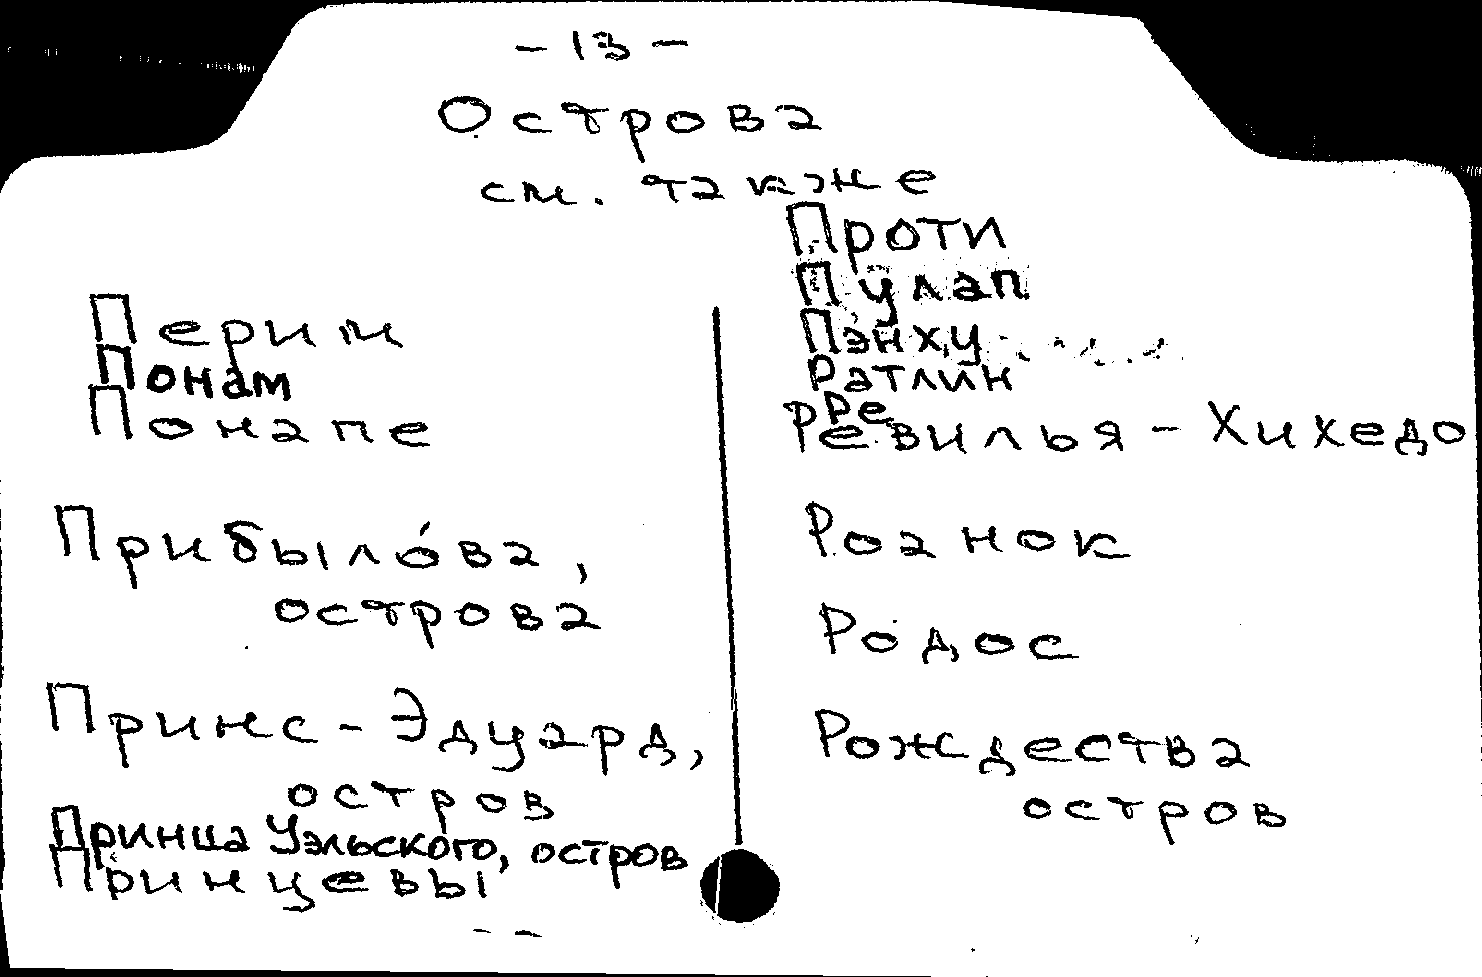 - 13 -
Острова
см. также
Перим
Понам
Понапе
Прибыло́ва,
острова
Принс-Эдуард,
остров
Принца Уэльского, остров
Принцевы
Проти
Пулап
Пэнху
Ратлин
Ре
Ревилья-Хихедо
Роанок
Родос
Рождества
остров